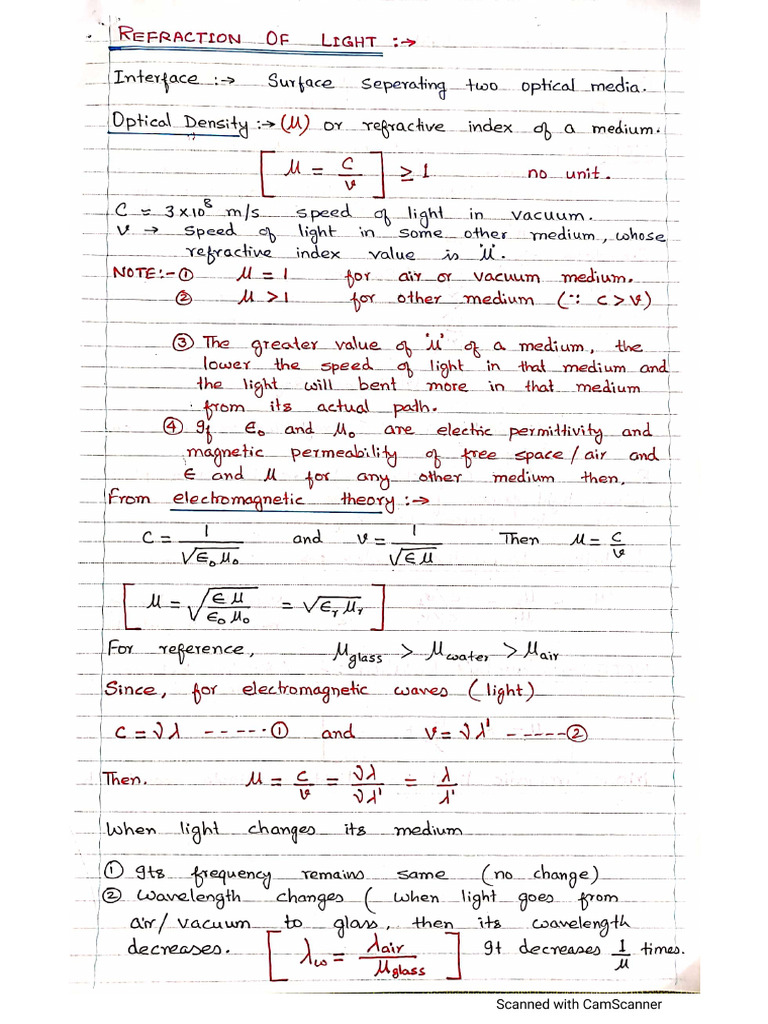 REFRACTION OF LIGHT :→
Interface :→ Surface seperating two optical media.
Optical Density :→ (μ) or refractive index of a medium.
[ μ = c/v ] ≥ 1 no unit.
C = 3×10⁸ m/s speed of light in vacuum.
v → speed of light in some other medium, whose
refractive index value is 'μ'.
NOTE:- ① μ = 1 for air or vacuum medium.
② μ > 1 for other medium (∵ c > v)
③ The greater value of 'μ' of a medium, the
lower the speed of light in that medium and
the light will bent more in that medium
from its actual path.
④ If ε₀ and μ₀ are electric permittivity and
magnetic permeability of free space/air and
ε and μ for any other medium then,
From electromagnetic theory :→
C = 1/√ε₀μ₀ and v = 1/√εμ Then μ = c/v
[ μ = √(εμ/ε₀μ₀) = √εᵣμᵣ ]
For reference, μglass > μwater > μair
Since, for electromagnetic waves (light)
c = νλ ----- ① and v = νλ' ----- ②
Then. μ = c/v = νλ/νλ' = λ/λ'
When light changes its medium
① Its frequency remains same (no change)
② Wavelength changes ( when light goes from
air/vacuum to glass, then its wavelength
decreases. [ λω = λair/μglass ] It decreases 1/μ times.
Scanned with CamScanner